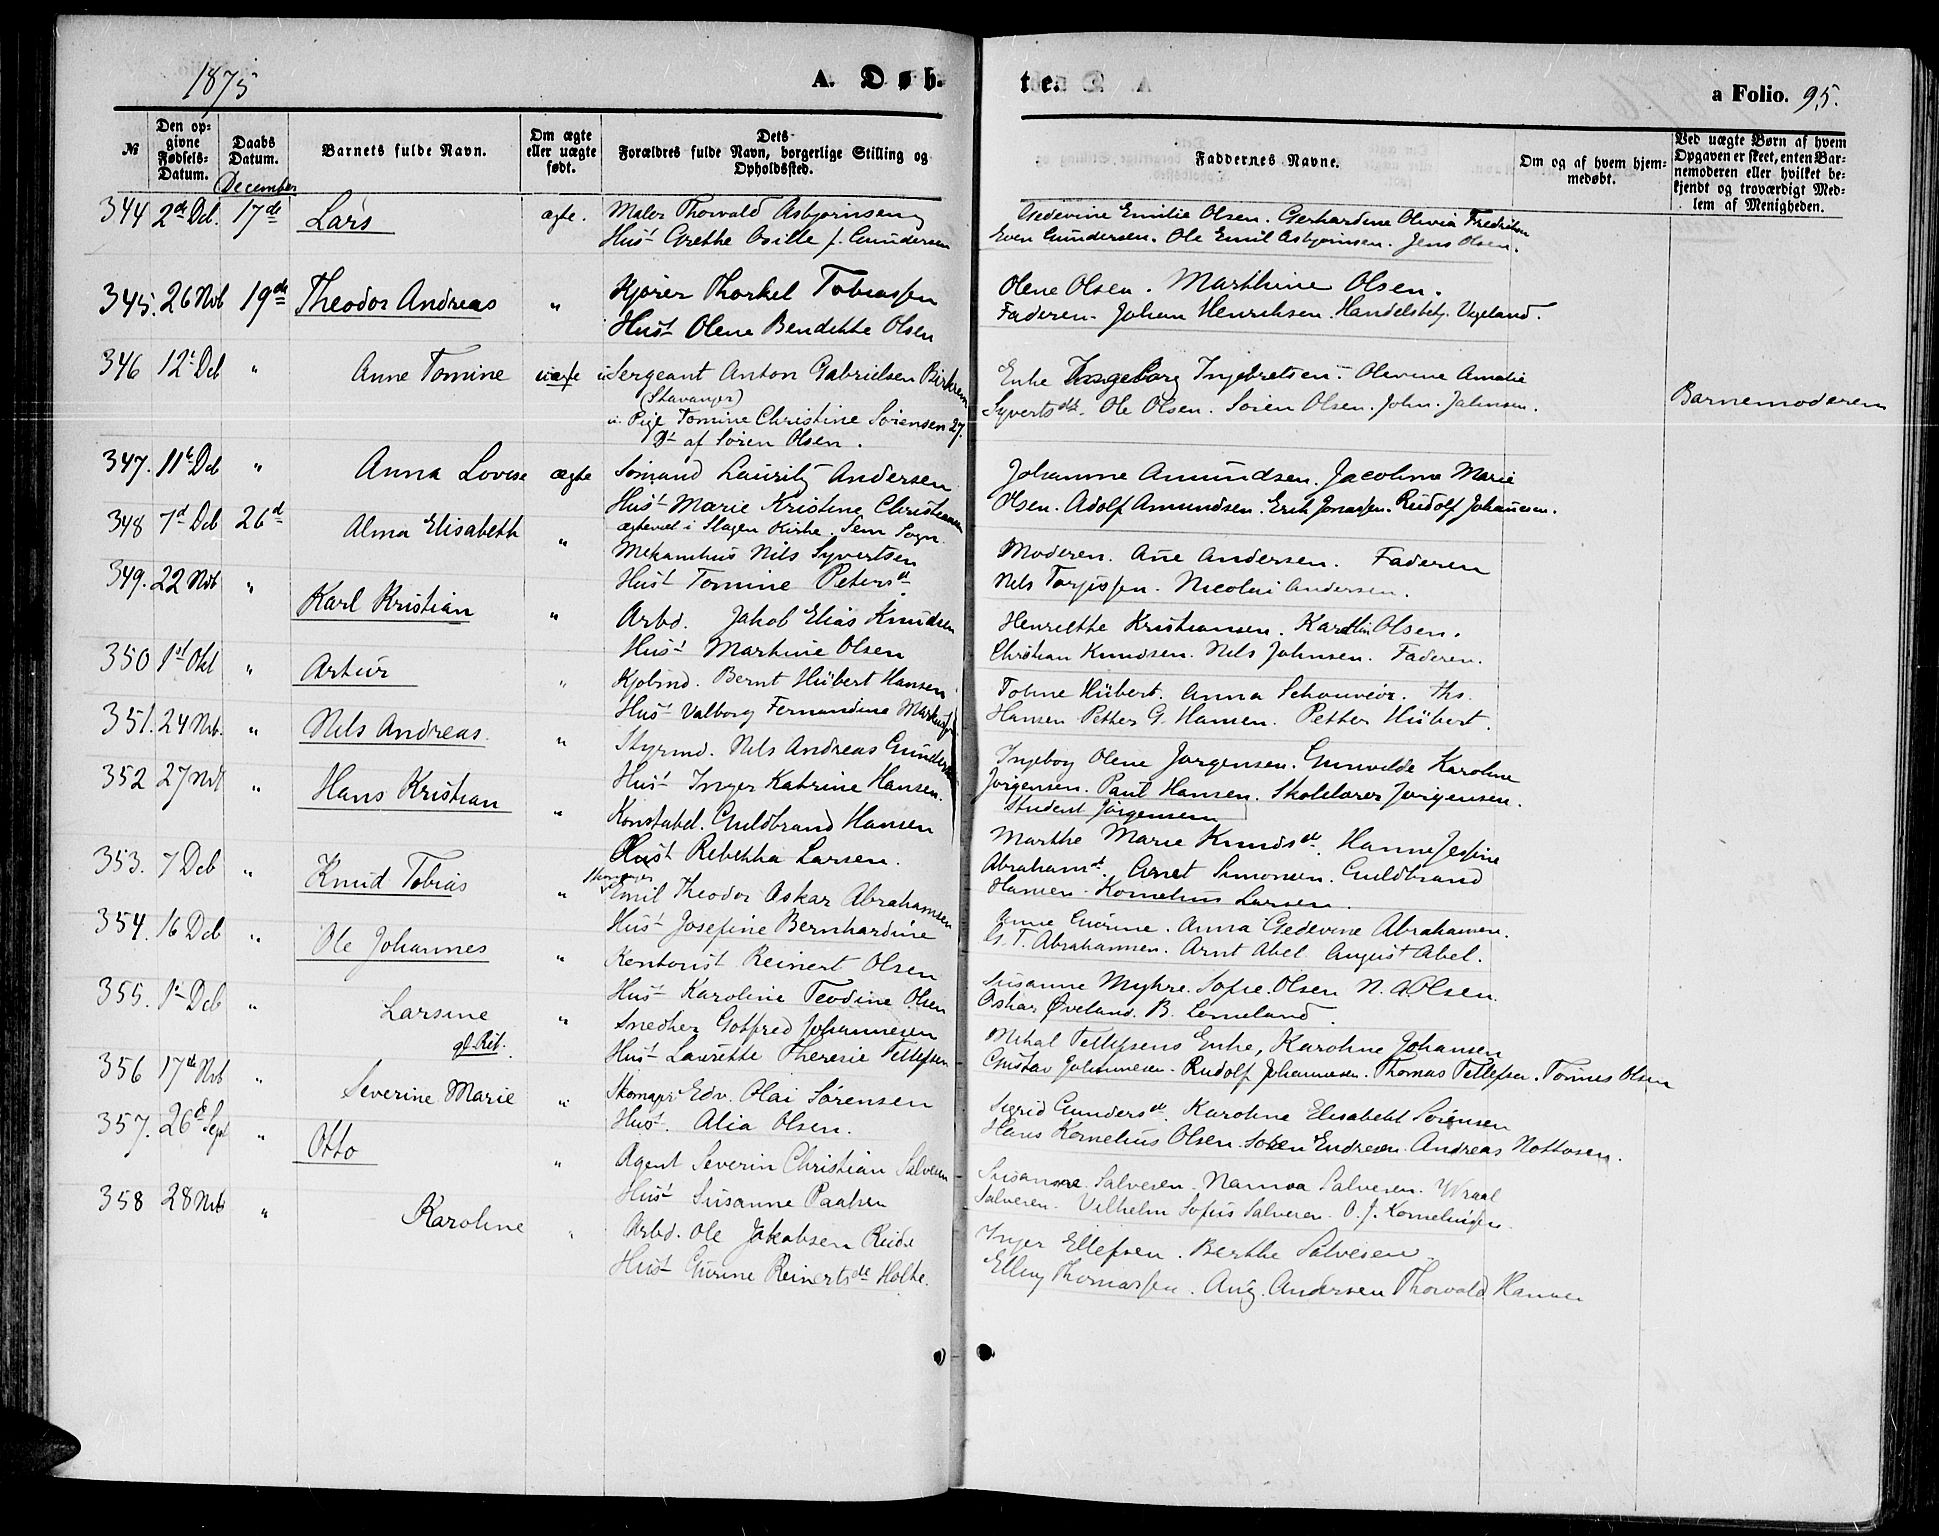 1875
A. Døb-
te.
a Folio. 95.
№
Den op-
givne
Fødsels-
Datum.
Daabs
Datum.
Barnets fulde Navn.
Om ægte
eller uægte
født.
Dets
Forældres fulde Navn, borgerlige Stilling og
Opholdssted.
Faddernes Navne.
Om og af hvem hjem-
medøbt.
Ved uægte Børn af hvem
Opgaven er skeet, enten Bar-
nemoderen eller hvilket be-
kjendt og troværdigt Med-
lem af Menigheden.
December
344 2de Deb. 17de Lars ægte. Maler Thorvald Asbjørnsen
Hust Grethe Osille f. Gundersen
Gedevine Emilie Olsen. Gerhardine Olivia Fredriksen
Even Gundersen. Ole Emil Asbjørnsen. Jens Olsen.
345. 26 Novb 19de Theodor Andreas " Kjører Thorkel Tobiassen
Hust Olene Bendikte Olsen
Olene Olsen. Marthine Olsen.
Faderen. Johan Henriksen. Handelsbetj. Vegeland.
346 12t Deb " Anne Tomine uægte Sergeant Anton Gabrielsen Birkrem
(Stavanger)
u. Pige Tomine Christine Sørensen 27.
Dt af Søren Olsen.
Enke Ingeborg Ingebretsen. Olevine Amalie
Syvertsdt. Ole Olsen. Søren Olsen. John Jahnsen.
Barnemoderen
347. 11t Deb " Anna Lovise ægte Sømand Lauritz Andersen
Hust Marie Kristine Christiansen
ægteviet i Slagen Kirke. Sem Sogn.
Johanne Amundsen. Jacobine Marie
Olsen. Adolf Amundsen. Erik Jonassen. Rudolf Johannesen.
348 7d Deb 26d Alma Elisabeth " Mekanikus Nils Syvertsen
Hust Tomine Petersdt
Moderen. Ane Andersen. Faderen
Nils Torjussen. Nicolai Andersen.
349. 22 Novb " Karl Kristian " Arbd. Jakob Elias Knudsen
Hust Martine Olsen
Henriette Kristiansen. Karoline Olsen.
Christian Knudsen. Nils Johnsen. Faderen.
350 1st Okt " Artur " Kjøbmd. Bernt Hübert Hansen
Hust Valborg Fernandine
Tobine Hübert. Anna Ths.
Hansen Petter G. Hansen. Petter Hübert.
351. 24 Nvb. " Nils Andreas " Styrmd. Nils Andreas Gundersen
Hust Inger Katrine Hansen.
Ingeborg Olene Jørgensen. Gunvelde Karoline
Jørgensen. Paul Hansen. Skolelærer Jørgensen.
Student Jørgensen
352 27 Nvb " Hans Kristian " Konstabel. Guldbrand Hansen
Hust Rebekka Larsen.
Marthe Marie Knudsdt. Hanne Jesfine
Abrahamsdt. Arnt Simonsen. Guldbrand
Hansen. Kornelius Larsen.
353. 7 Deb " Knud Tobias " Emil Theodor Oskar Abrahamsen
Hust Josefine Bernhardine
Anne Gurine. Anna Gedevine Abrahamsen.
G. T. Abrahamsen. Arnt Abel August Abel.
354. 16 Deb " Ole Johannes " Kontorist Reinert Olsen
Hust Karoline Teodine Olsen
Susanne Myhre. Sofie Olsen N. A. Olsen.
Oskar Øveland. B. Lomeland.
355. 1st Deb " Larsine " Snedker Gotfred Johannesen
Hust Laurette Theresie Tellefsen
Mikal Tellefsens Enke, Karoline Johansen
Gustav Johannesen. Rudolf Johannesen. Thomas Tellefsen. Tønnes Olsen
356 17de Nvb " Severine Marie " Skomagr Edv. Olai Sørensen
Hust. Alia Olsen.
Sigrid Gundersdt. Karoline Elisabeth Sørensen
Hans Kornelius Olsen. Søren Endresen. Andreas Nottosen.
357. 26de Sept " Otto " Agent Severin Christian Salvesen
Hust Susanne Paalsen
Susanne Salvesen. Nanna Salvesen. Wraal
Salvesen. Vilhelm Sofus Salvesen. O. J. Korneliussen.
358 28 Nvb " Karoline " Arbd. Ole Jakobsen
Hust Gurine Reinertsdt. Holte.
Inger Ellefsen. Berthe Salvesen
Elling Thomassen. Aug. Andersen Thorvald Hansen